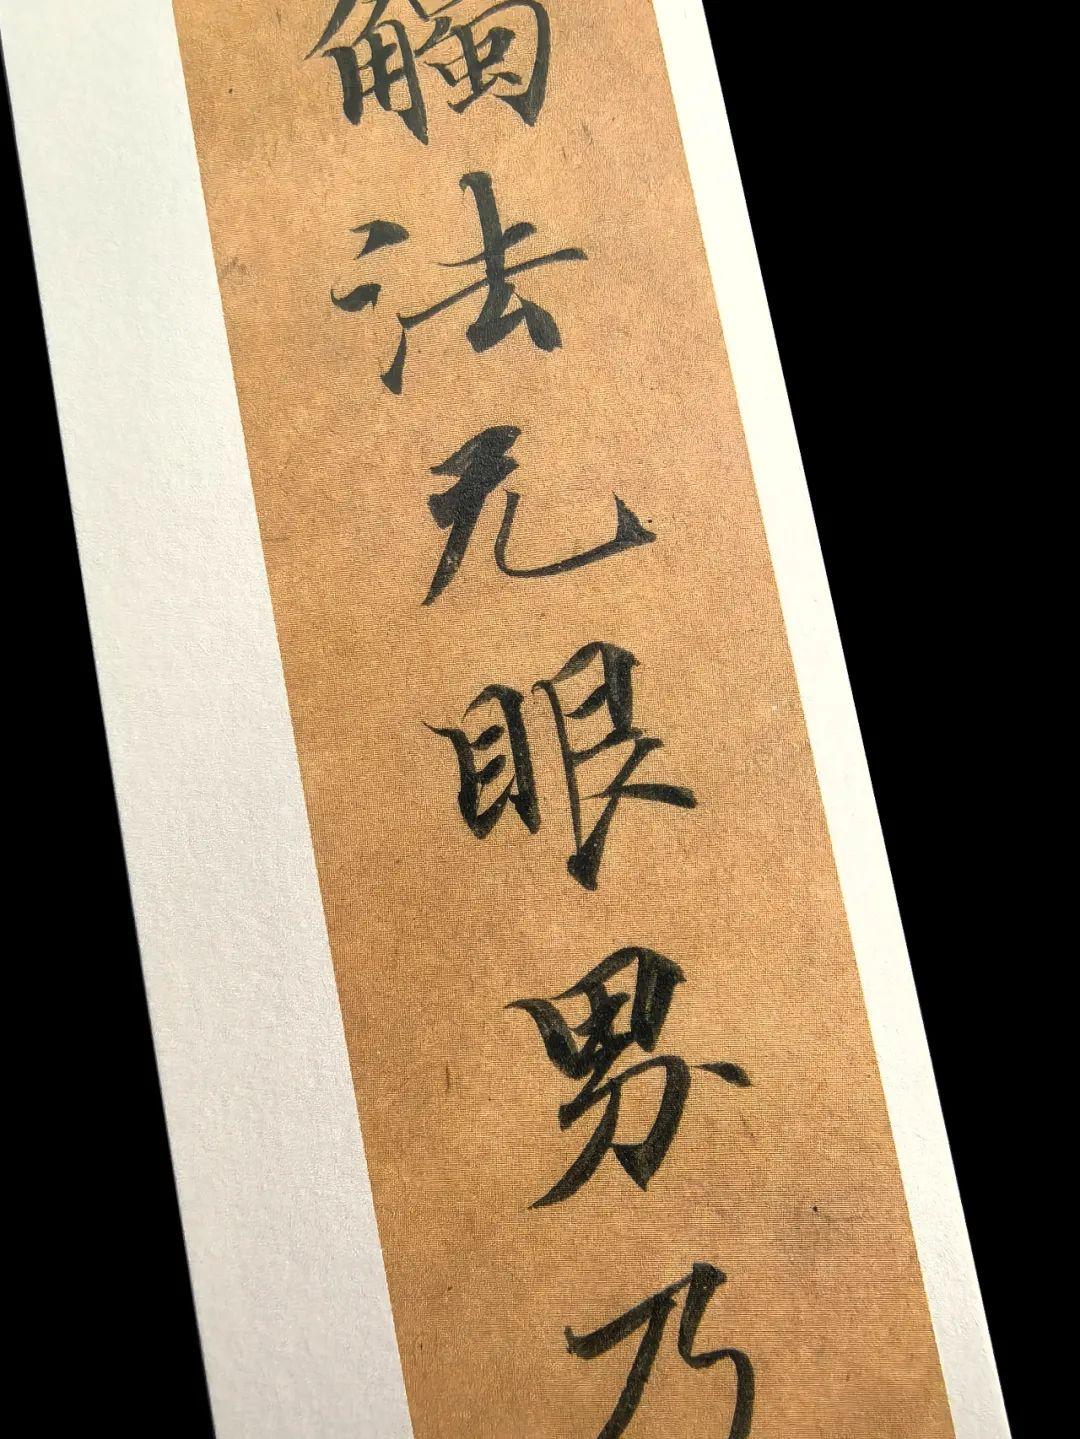 觸法无眼界乃